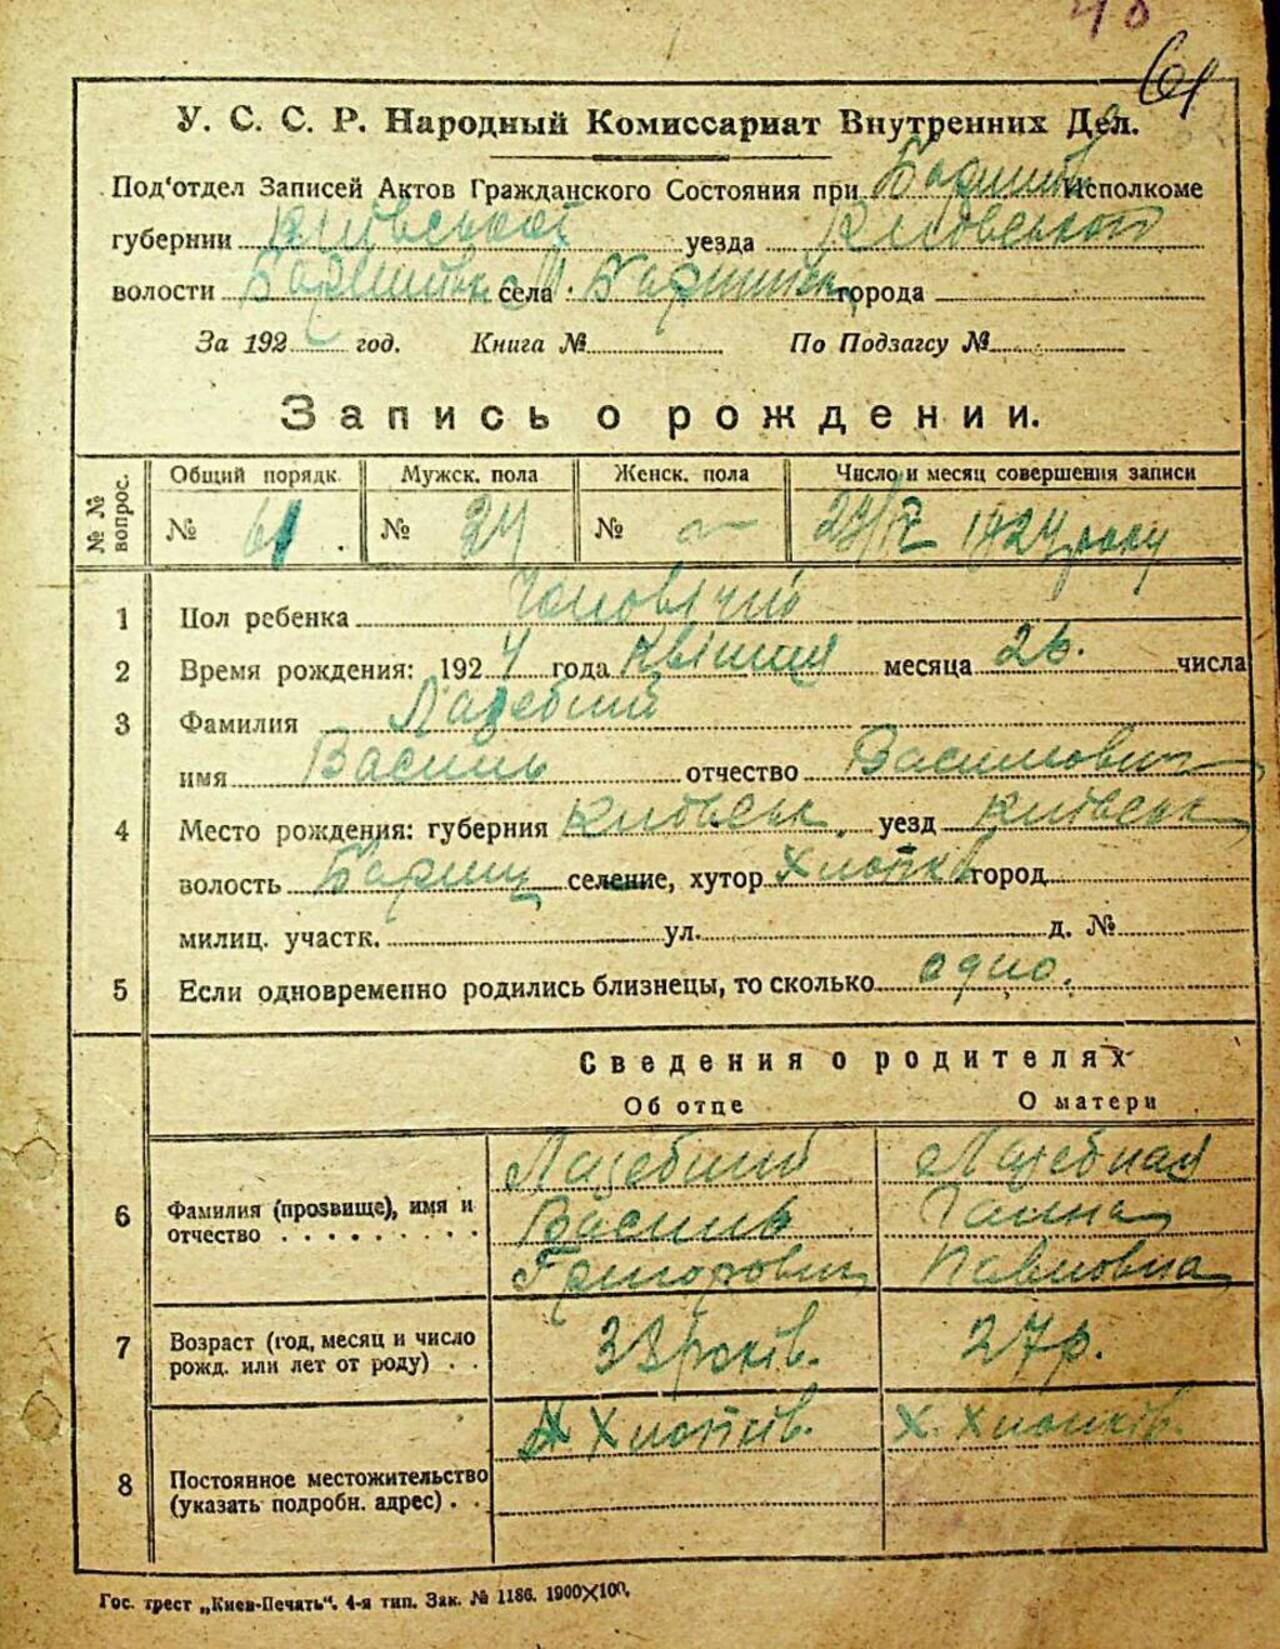 48
61
У. С. С. Р. Народный Комиссариат Внутренних Дел.
Под'отдел Записей Актов Гражданского Состояния при Исполкоме
губернии Київської уезда Київського
волости села города
За 192 год. Книга № По Подзагсу №
Запись о рождении.
№ № вопрос. Общий порядк. Мужск. пола Женск. пола Число и месяц совершения записи
№ 61. № 34 № — 29/IV 1924 року
1 Пол ребенка Чоловічий
2 Время рождения: 1924 года Квітня месяца 26. числа
3 Фамилия Лазебний
имя Василь отчество Василиович
4 Место рождения: губерния Київськ. уезд Київськ
волость Бариш селение, хутор Хлопків город
милиц. участк. ул. д. №
5 Если одновременно родились близнецы, то сколько одно.
Сведения о родителях
Об отце О матери
6 Фамилия (прозвище), имя и отчество Лазебний Лазебная
Василь Ганна
Григорович Павловна
7 Возраст (год, месяц и число рожд. или лет от роду) 38 років. 27 р.
8 Постоянное местожительство (указать подробн. адрес) Х. Хлопків. Х. Хлопків.
Гос. трест „Киев-Печать“. 4-я тип. Зак. № 1186. 1900×100.